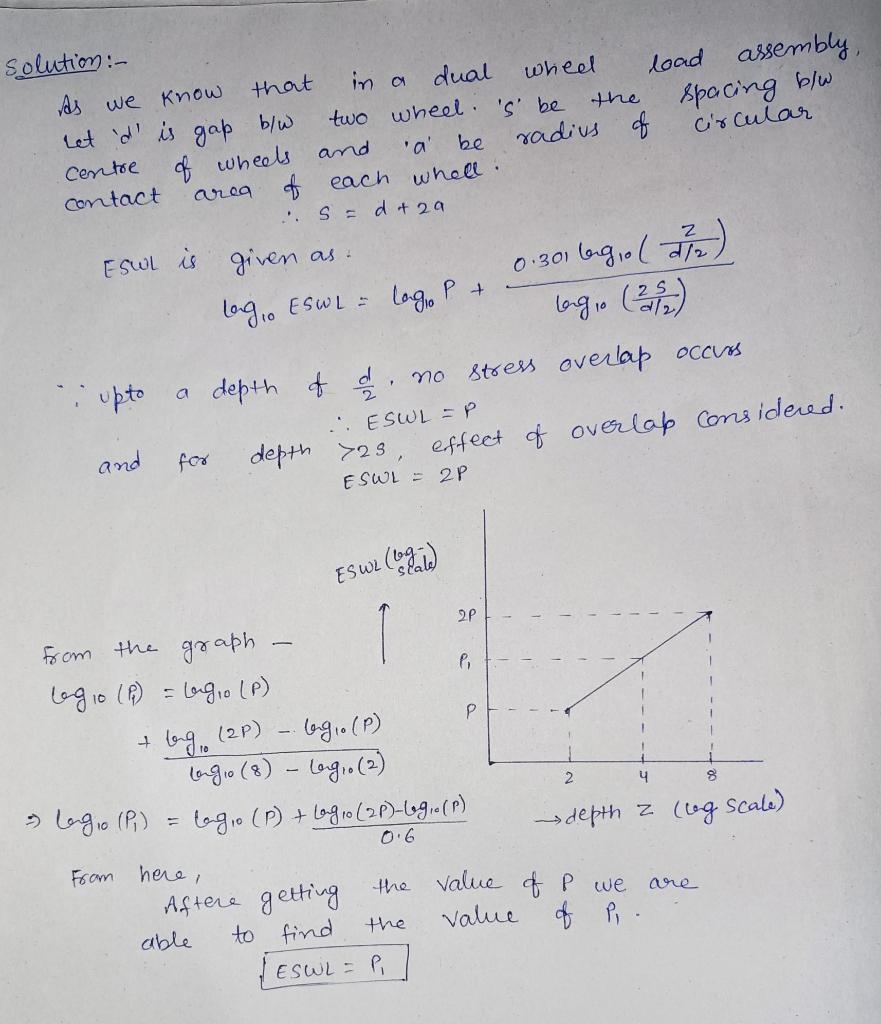 Solution:-
As we know that in a dual wheel load assembly,
Let 'd' is gap b/w two wheel. 's' be the spacing b/w
centre of wheels and 'a' be radius of circular
contact area of each wheel.
∴ S = d + 2a
ESWL is given as:
log₁₀ ESWL = log₁₀ P + 0.301 log₁₀ (z/(d/2)) / log₁₀ (2S/(d/2))
∵ upto a depth of d/2, no stress overlap occurs
∴ ESWL = P
and for depth >2S, effect of overlap considered.
ESWL = 2P
ESWL (log-scale)
↑
2P
P₁
P
2 4 8
→ depth z (log scale)
From the graph -
log₁₀ (P₁) = log₁₀ (P)
+ log₁₀ (2P) - log₁₀ (P) / log₁₀ (8) - log₁₀ (2)
⇒ log₁₀ (P₁) = log₁₀ (P) + log₁₀(2P)-log₁₀(P) / 0.6
From here,
Aftere getting the value of P we are
able to find the value of P₁.
ESWL = P₁